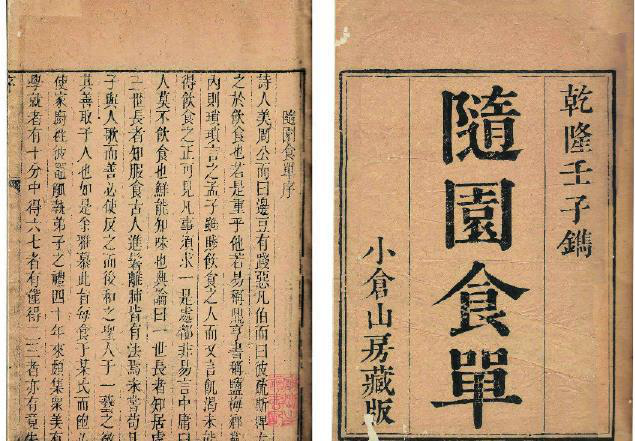 乾隆壬子鐫
隨園食單
小倉山房藏版
隨園食單序
詩人美周公而曰籩豆有踐惡凡伯而曰彼疏斯稗
之於飲食也若是重乎他若易稱鼎亨書稱鹽梅鄉
內則瑣瑣言之孟子雖賤飲食之人而又言飢渴未
得飲食之正可見凡事須求一是處都非易言中庸曰
人莫不飲食也鮮能知味也典論曰一世長者知居處
三世長者知服食古人進鬐離肺皆有法焉未嘗苟
子與人歌而善必使反之而後和之聖人于一藝之微
其善取于人也如是余雅慕此旨每食于某氏而飽
使家廚往彼竈觚執弟子之禮四十年來頗集眾美有
學就者有十分中得六七者有僅得二三者亦有竟失